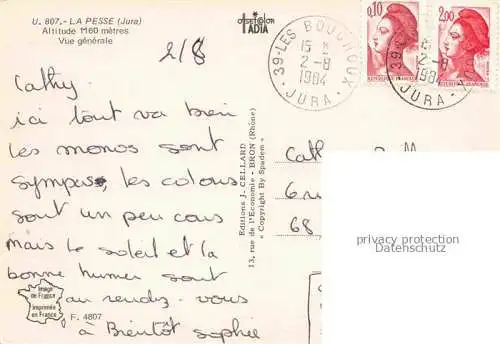 U. 807. - LA PESSE (Jura)
Altitude 1160 mètres
Vue générale
offsetcolor
IADIA
39-LES BOUCHOUX
15 H
2-8
1984
JURA
0,10
REPUBLIQUE FRANÇAISE
2,00
REPUBLIQUE FRANÇAISE
39
2-8
1984
JURA
2/8
Cathy.
ici tout va bien
les monos sont
sympas, les colons
sont un peu cons
mais le soleil et la
bonne humer sont
au rendez-vous
à Bientôt sophie
Image
de France
Imprimée
en France
F. 4807
Editions J. CELLARD
13, rue de l'Economie - BRON (Rhône)
« Copyright By Spadem »
Cath
6 ru
68,
privacy protection
Datenschutz